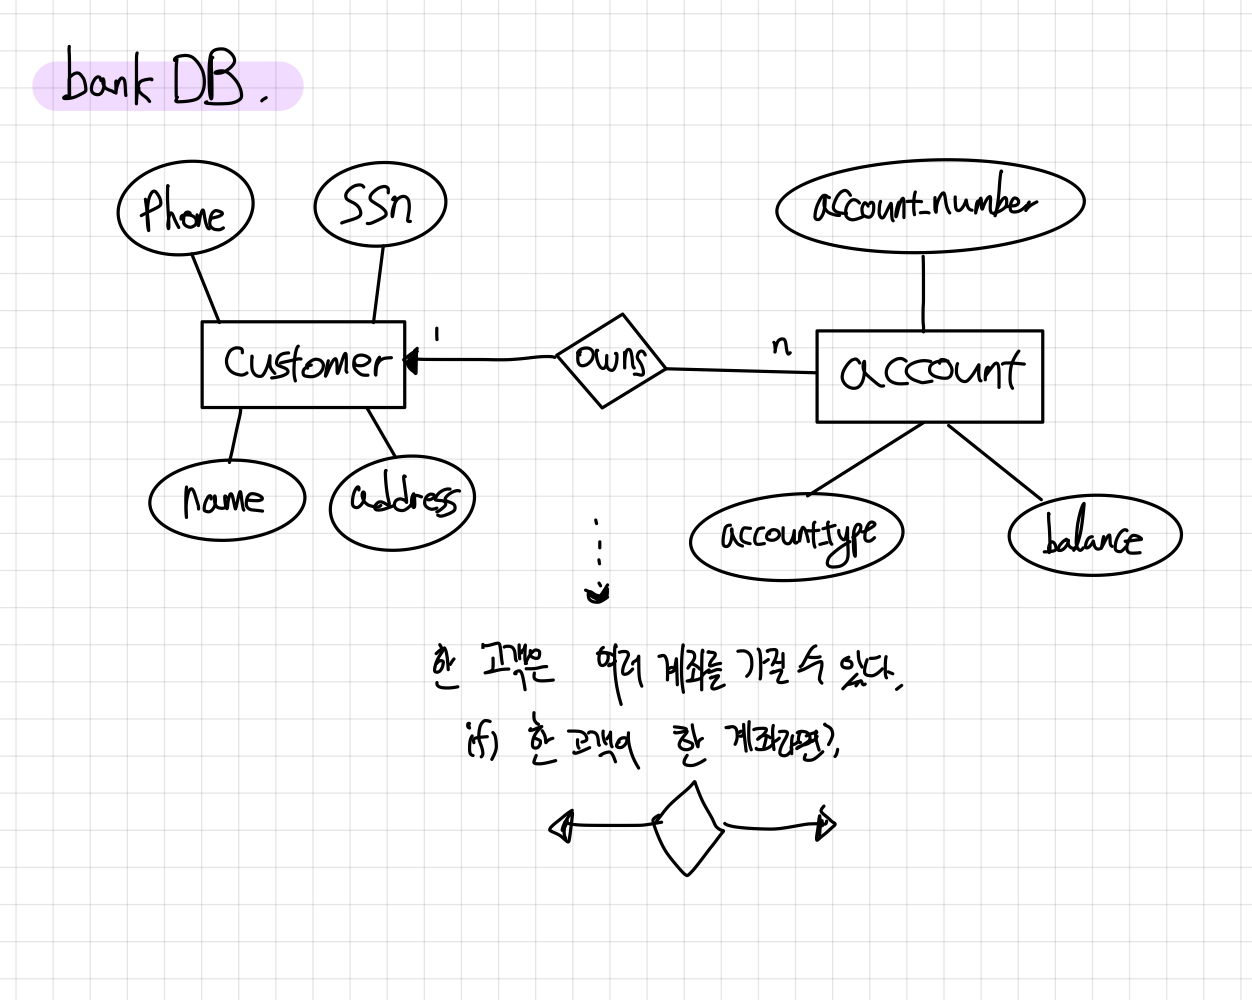 bank DB.
Phone
SSn
account_number
customer
1
owns
n
account
name
address
account_type
balance
한 고객은 여러 계좌를 가질 수 있다.
if) 한 고객이 한 계좌라면?